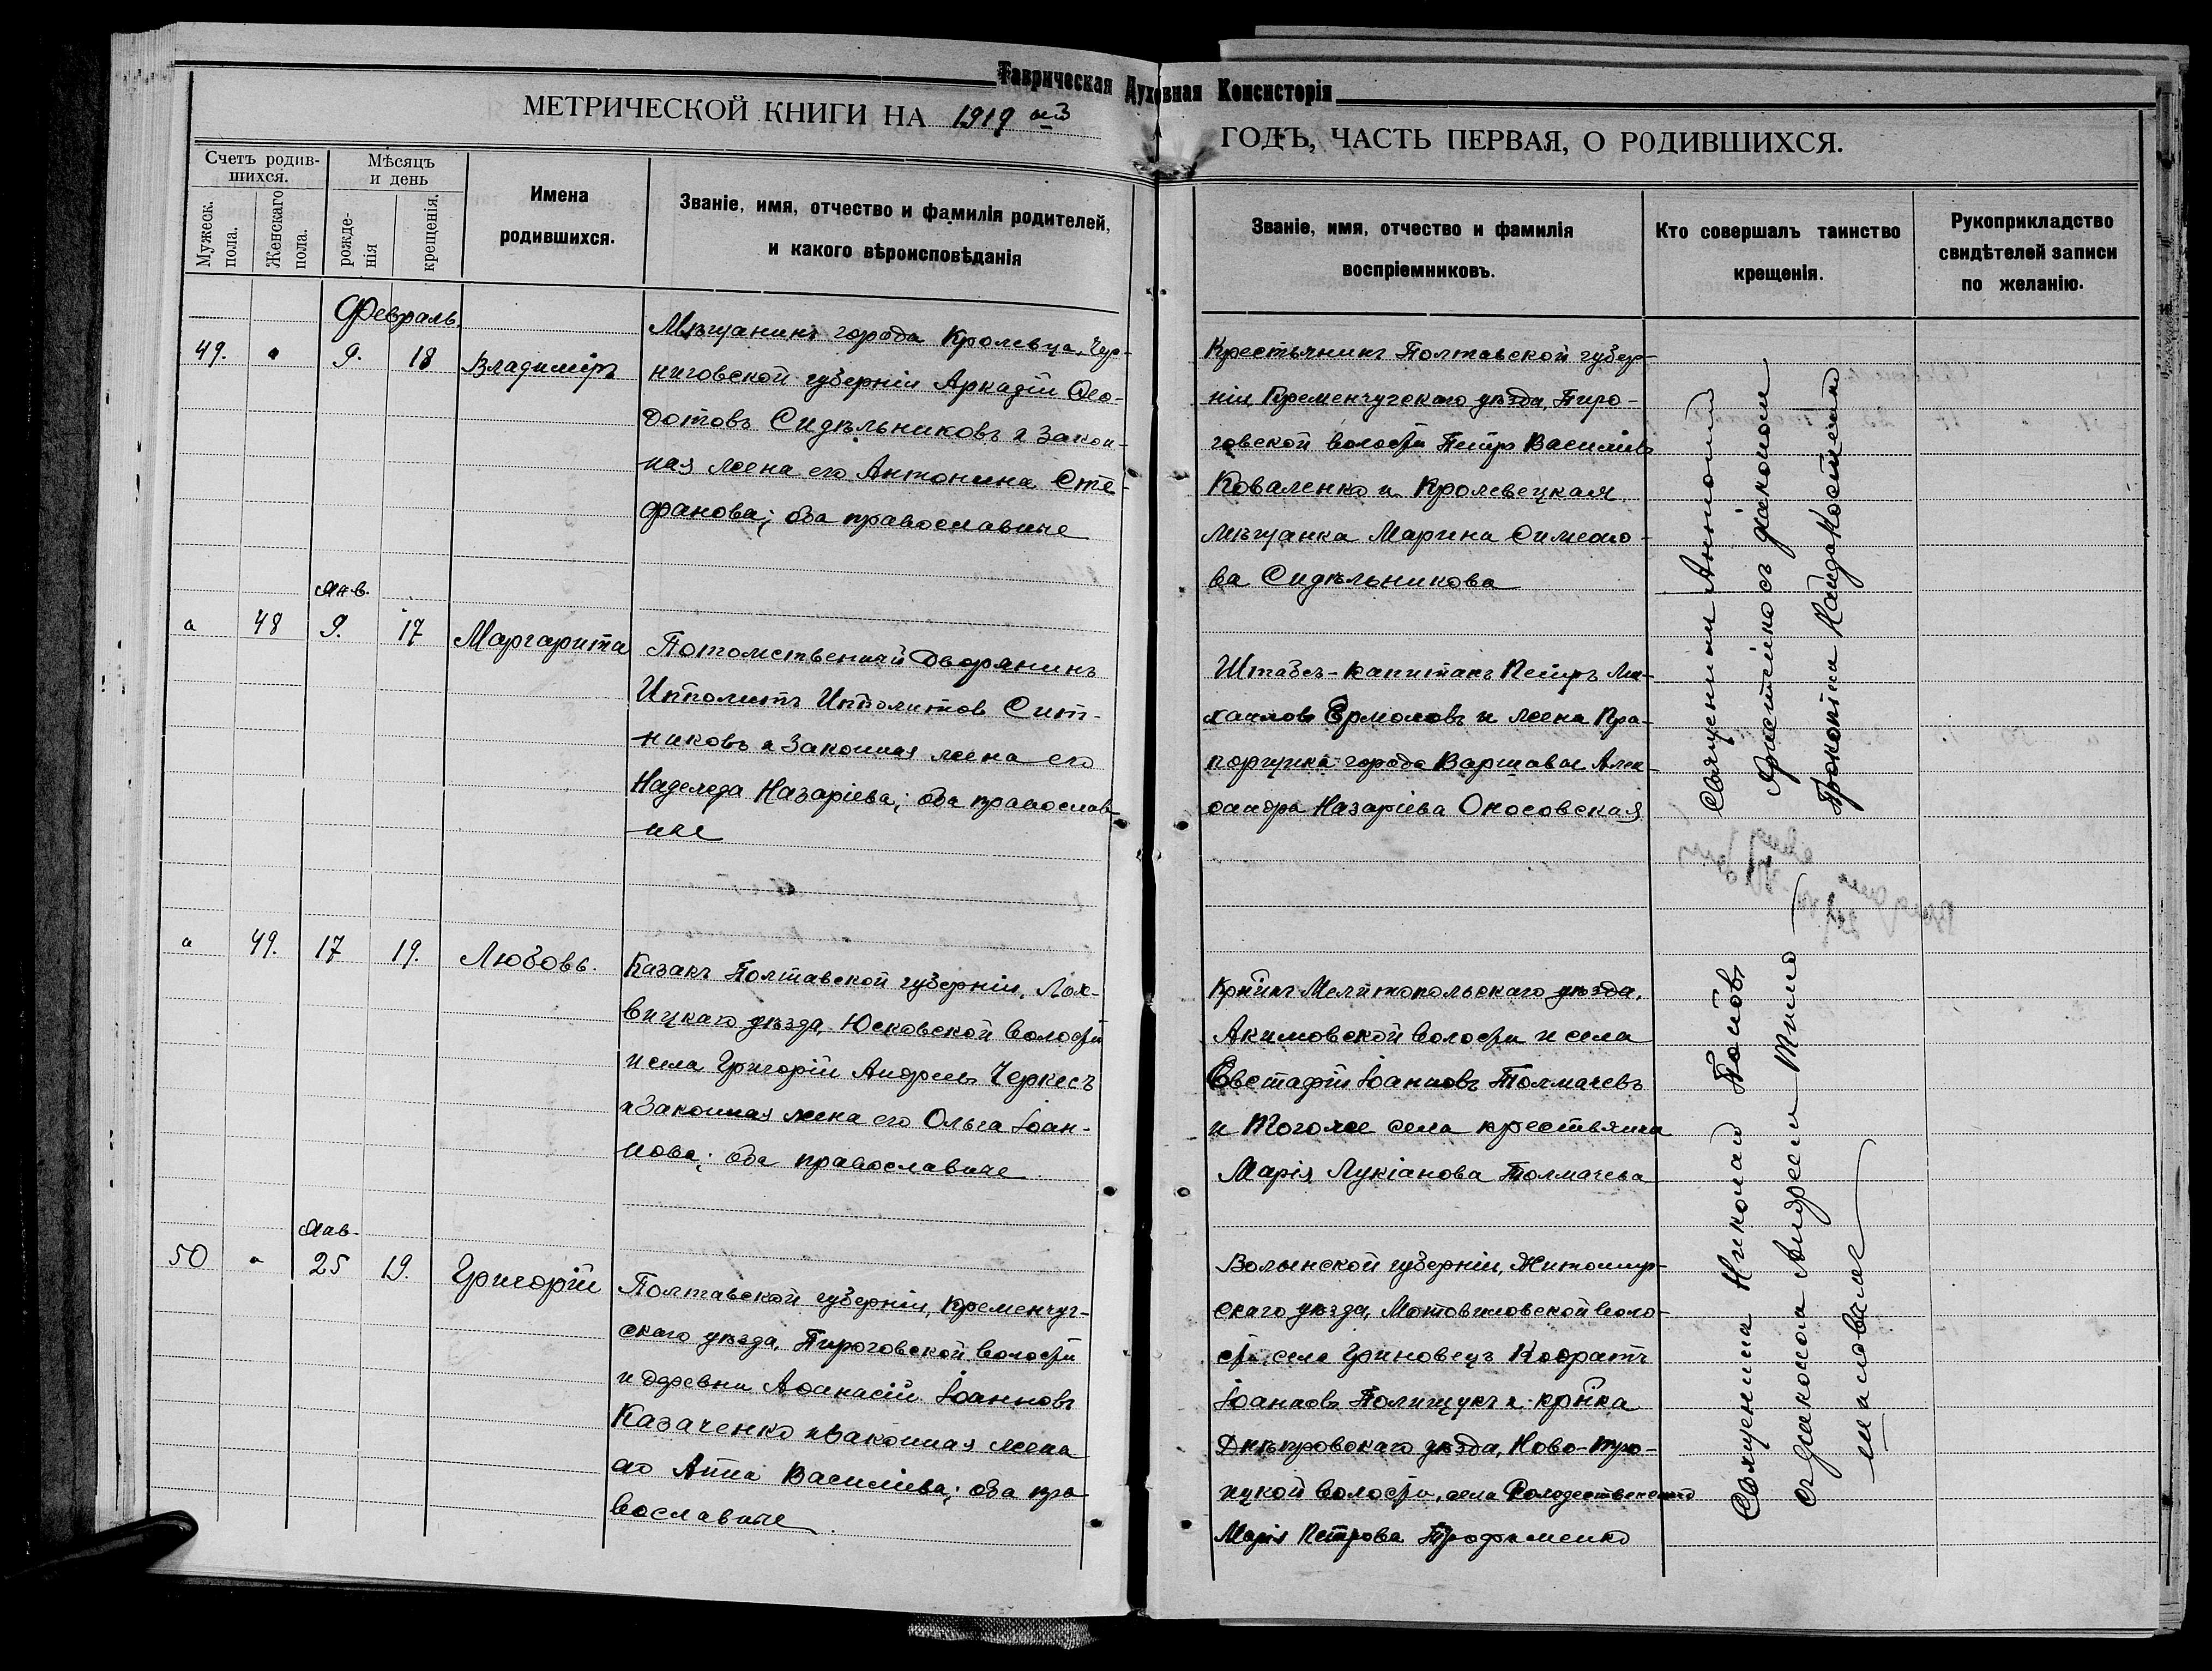 Таврическая Духовная Консисторія
МЕТРИЧЕСКОЙ КНИГИ НА 1919 из
ГОДЪ, ЧАСТЬ ПЕРВАЯ, О РОДИВШИХСЯ.
Счетъ родив-
шихся.
Мужеск.
пола.
Женскаго
пола.
Мѣсяцъ
и день
рожде-
нія
крещенія.
Имена
родившихся.
Званіе, имя, отчество и фамилія родителей,
и какого вѣроисповѣданія
Званіе, имя, отчество и фамилія
воспріемниковъ.
Кто совершалъ таинство
крещенія.
Рукоприкладство
свидѣтелей записи
по желанію.
Февраль.
49. " 9. 18 Владиміръ
Мѣщанинъ города Кролевца, Чер-
ниговской губерніи Аркадій Ѳео-
дотовъ Сидѣльниковъ и закон-
ная жена его Антонина Сте-
фанова; оба православные
Крестьянинъ Полтавской губер-
ніи, Кременчугскаго уѣзда, Пиро-
говской волости Петръ Василіевъ
Коваленко и Кролевецкая
мѣщанка Марина Симео-
ва Сидѣльникова
Янв.
" 48 9. 17 Маргарита
Потомственный Дворянинъ
Ипполитъ Ипполитов Сит-
никовъ и законная жена его
Надежда Назаріева; оба православ-
ные
Штабсъ-капитанъ Петръ Ми-
хаиловъ Ермоловъ и жена Пра-
порщика города Варшавы Алек-
сандра Назаріева Оносовская
Священник Антоній
съ діакономъ
Прокопіем Найда Костенко
" 49. 17 19. Любовь.
Казакъ Полтавской губерніи, Лох-
вицкаго уѣзда, Юсковской волости
и села Григорій Андреевъ Черкесъ
и законная жена его Ольга Іоан-
нова; оба православные
Кр-инъ Мелитопольскаго уѣзда,
Акимовской волости и села
Евстафій Іоанновъ Толмачевъ
и того же села крестьянка
Марія Лукіанова Толмачева
Янв.
50 " 25 19. Григорій
Полтавской губерніи, Кременчуг-
скаго уѣзда, Пироговской волости
и деревни Аѳанасій Іоанновъ
Казаченко и законная жена
его Анна Василіева; оба пра-
вославные
Волынской губерніи, Житомир-
скаго уѣзда, Мотовиловской воло-
сти, села Гриновецъ Кодратъ
Іоанновъ Полищукъ и кр-нка
Днѣпровскаго уѣзда, Ново-Тро-
ицкой волости, села Рождественскаго
Марія Петрова Трофименко
Священник Николай Поповъ
съ діаконом Андреем Тимо-
шиловымъ